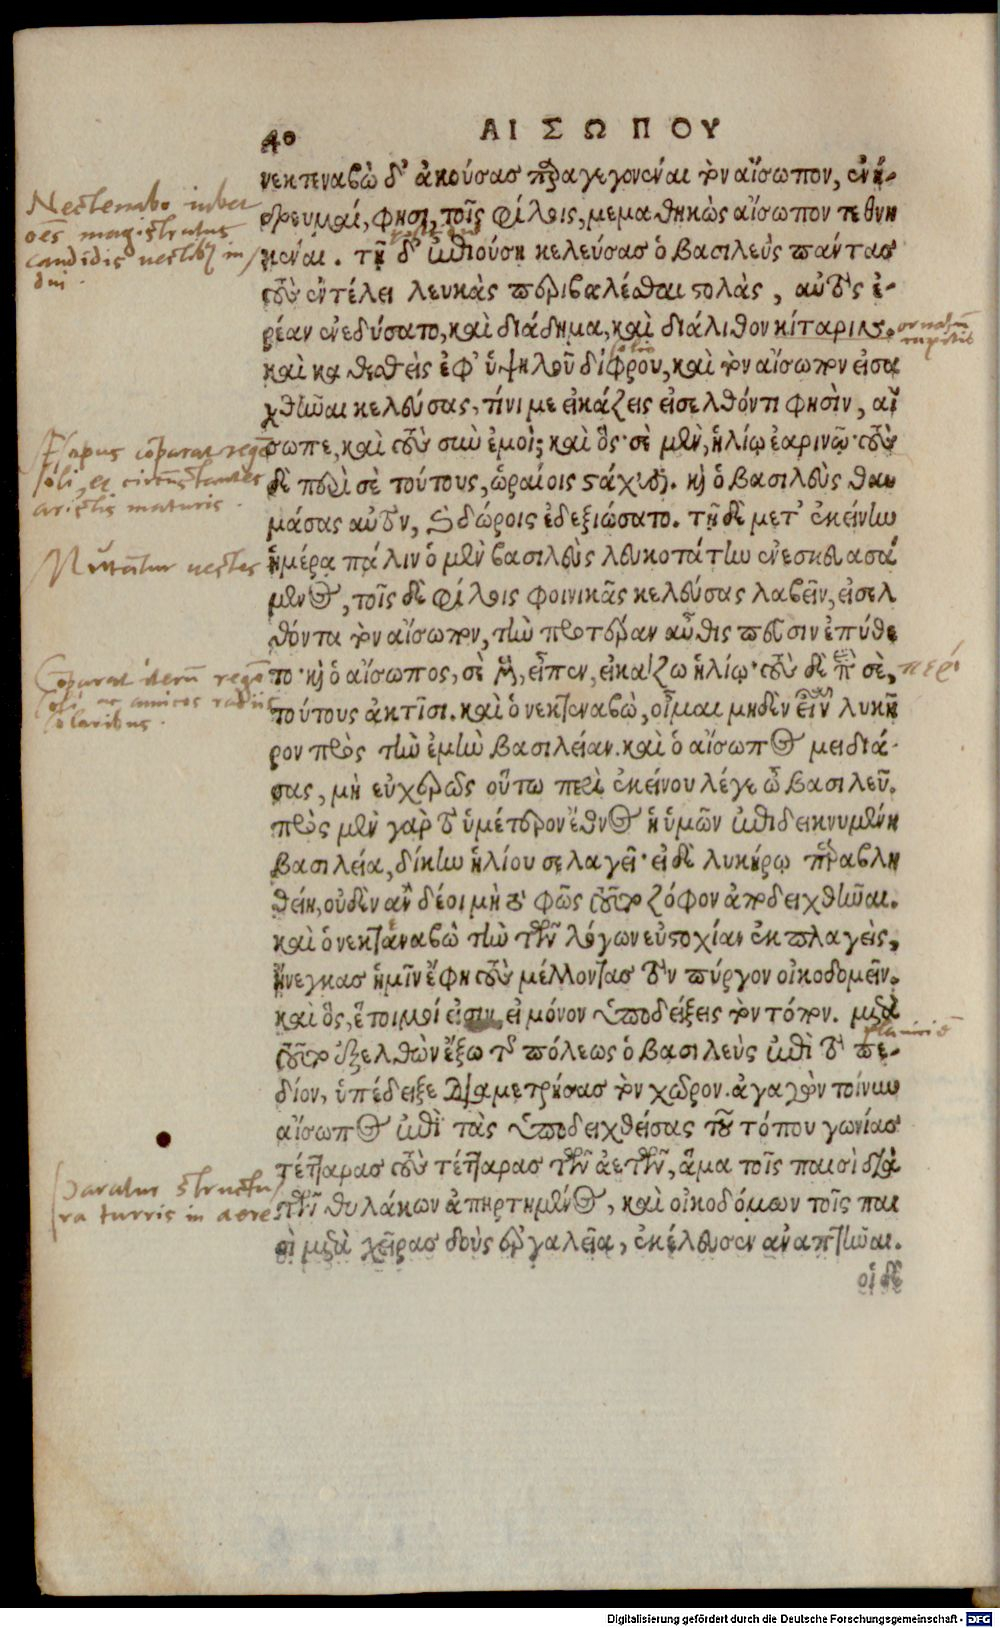 40
ΑΙΣΩΠΟΥ
νεκτεναβὼ δ' ἀκούσας παραγεγονέναι τὸν αἴσωπον, ἐνή-
δρευμαί, φησι, τοῖς φίλοις, μεμαθηκὼς αἴσωπον τεθνη
κέναι. τῇ δ' ἐπιούσῃ κελεύσας ὁ βασιλεὺς πάντας
τοὺς ἐν τέλει λευκὰς περιβαλέσθαι στολὰς, αὐτὸς ἐ-
ρέαν ἐνεδύσατο, καὶ διάδημα, καὶ διάλιθον κίταριν.
καὶ καθεσθεὶς ἐφ' ὑψηλοῦ δίφρου, καὶ τὸν αἴσωπον εἰσα
χθῆναι κελεύσας, τίνι με εἰκάζεις εἰσελθόντι φησὶν, αἴ
σωπε, καὶ τοὺς σὺν ἐμοί; καὶ ὅς· σὲ μὲν, ἡλίῳ ἐαρινῷ· τοὺς
δὲ περὶ σὲ τούτους, ὡραίοις στάχυσι. καὶ ὁ βασιλεὺς θαυ
μάσας αὐτὸν, καὶ δώροις ἐδεξιώσατο. τῇ δὲ μετ' ἐκείνην
ἡμέρα πάλιν ὁ μὲν βασιλεὺς λευκοτάτην ἐνεσκευασά
μενος, τοῖς δὲ φίλοις φοινικᾶς κελεύσας λαβεῖν, εἰσελ
θόντα τὸν αἴσωπον, τὴν προτέραν αὖθις πεῦσιν ἐπύθε
το· καὶ ὁ αἴσωπος, σὲ μὲν, εἶπεν, εἰκάζω ἡλίῳ· τοὺς δὲ περὶ σὲ,
τούτους ἀκτῖσι. καὶ ὁ νεκτεναβὼ, οἶμαι μηδὲν εἶναι λυκῆ
ρον πρὸς τὴν ἐμὴν βασιλείαν. καὶ ὁ αἴσωπος μειδιά-
σας, μὴ εὐχερῶς οὕτω περὶ ἐκείνου λέγε ὦ βασιλεῦ.
πρὸς μὲν γὰρ τὸ ὑμέτερον ἔθνος ἡ ὑμῶν ἐπιδεικνυμένη
βασιλεία, δίκην ἡλίου σελαγεῖ· εἰ δὲ λυκήρῳ παραβλη
θείη, οὐδὲν ἂν δέοι μὴ τὸ φῶς τοῦτο ζόφον ἀποδειχθῆναι.
καὶ ὁ νεκτεναβὼ τὴν τῶν λόγων εὐστοχίαν ἐκπλαγεὶς,
ἤνεγκας ἡμῖν ἔφη τοὺς μέλλοντας τὸν πύργον οἰκοδομεῖν.
καὶ ὃς, ἕτοιμοί εἰσιν, εἰ μόνον ὑποδείξεις τὸν τόπον. μετὰ
τοῦτο ἐξελθὼν ἔξω τῆς πόλεως ὁ βασιλεὺς ἐπὶ τὸ πε-
δίον, ὑπέδειξε διαμετρήσας τὸν χῶρον. ἀγαγὼν τοίνυν
αἴσωπος ἐπὶ τὰς ὑποδειχθείσας τοῦ τόπου γωνίας
τέτταρας τοὺς τέτταρας τῶν ἀετῶν, ἅμα τοῖς παισὶ διὰ
τῶν θυλάκων ἀπηρτημένος, καὶ οἰκοδόμων τοῖς παι
σὶ μετὰ χεῖρας δοὺς ἐργαλεῖα, ἐκέλευσεν ἀναπτῆναι.
οἱ δὲ
Nectenabo iubet
oēs magistratus
candidis uestibꝫ in
dui.
Esopus cōparat regē
soli, et circūstantes
aristis maturis.
Mutātur uestes
Cōparat iterū regē
soli ac amicos radiis
solaribus.
Paratur structu
ra turris in aere
ornatū
capitis
περί
planiciē
Digitalisierung gefördert durch die Deutsche Forschungsgemeinschaft - DFG